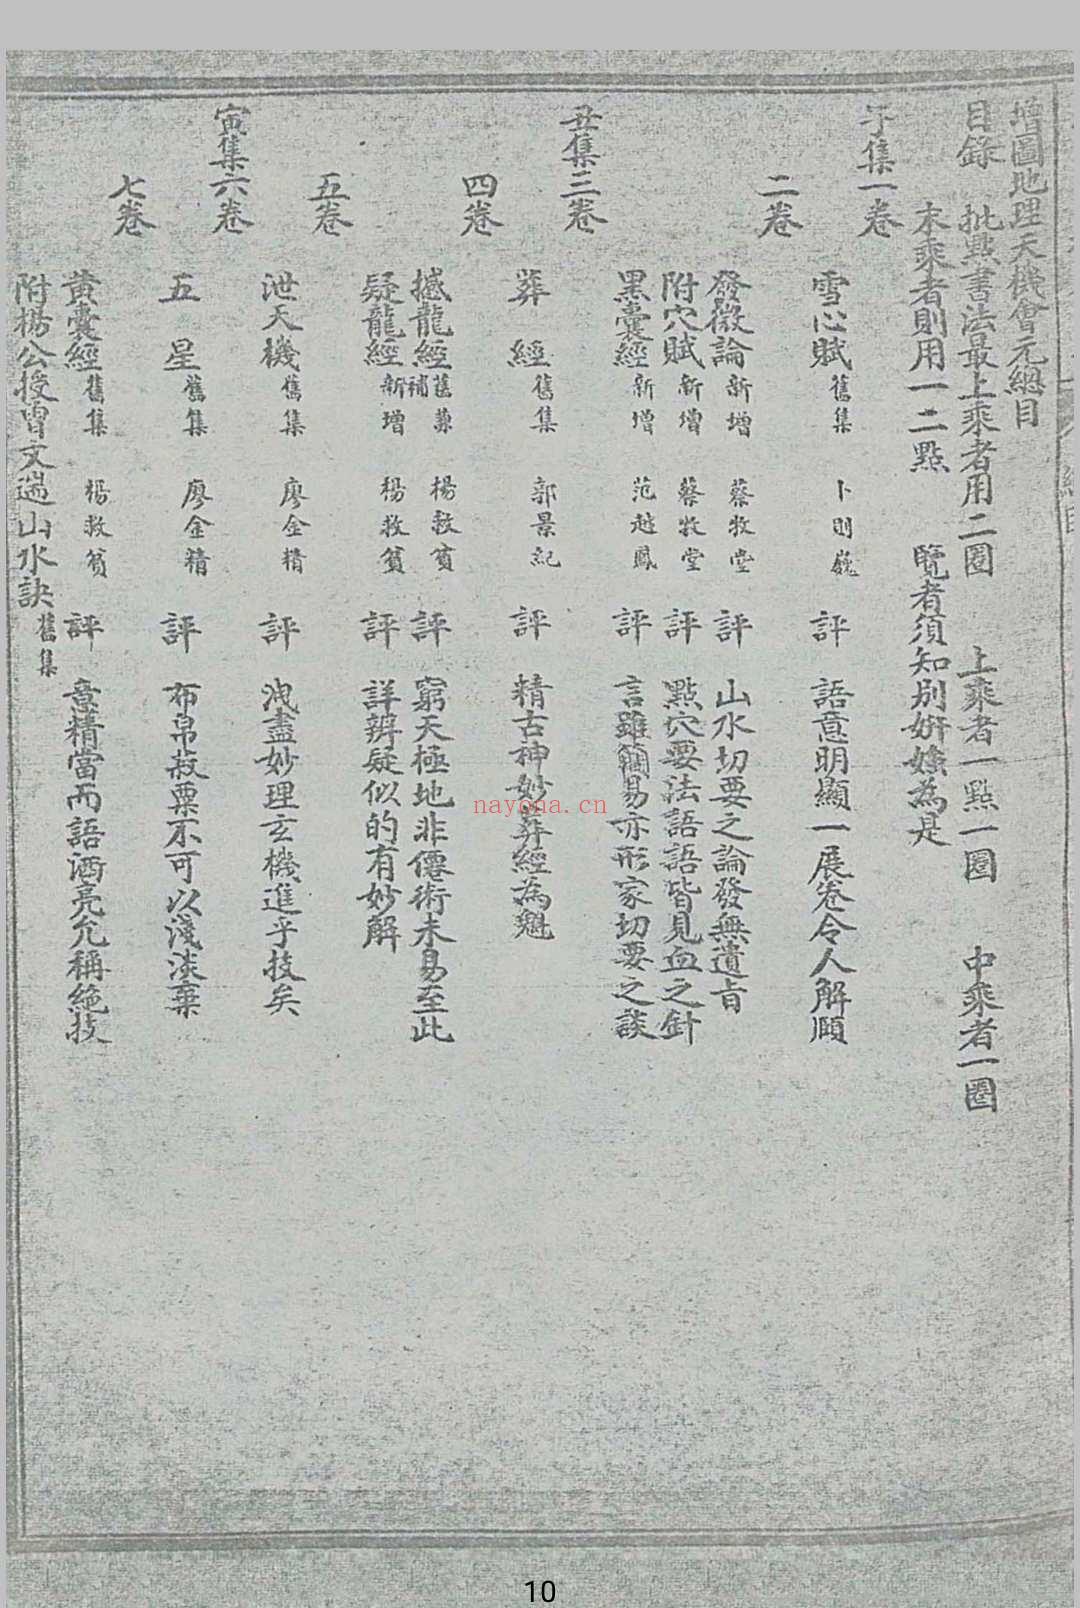 增圖地理天機會元總目
目錄 批點書法最上乘者用二圈 上乘者一點一圈 中乘者一圈
末乘者則用一二點 覽者須知別妍媸為是
子集一卷
雪心賦 舊集 卜則巍 評 語意明顯一展卷令人解頤
二卷
發微論 新增 蔡牧堂 評 山水切要之論發無遺旨
附穴賦 新增 蔡牧堂 評 點穴要法語語皆見血之針
黑囊經 新增 范越鳳 評 言雖簡易亦形家切要之談
丑集三卷
葬經 舊集 郭景純 評 精古神妙葬經為魁
四卷
撼龍經 舊兼補 楊救貧 評 窮天極地非僊術未易至此
疑龍經 新增 楊救貧 評 詳辨疑似的有妙解
五卷
泄天機 舊集 廖金精 評 洩盡妙理玄機進乎技矣
寅集六卷
五星 舊集 廖金精 評 布帛菽粟不可以淺淡棄
七卷
黃囊經 舊集 楊救貧 評 意精當而語洒亮允稱絶技
附楊公授曾文遄山水訣 舊集
nayona.cn
10